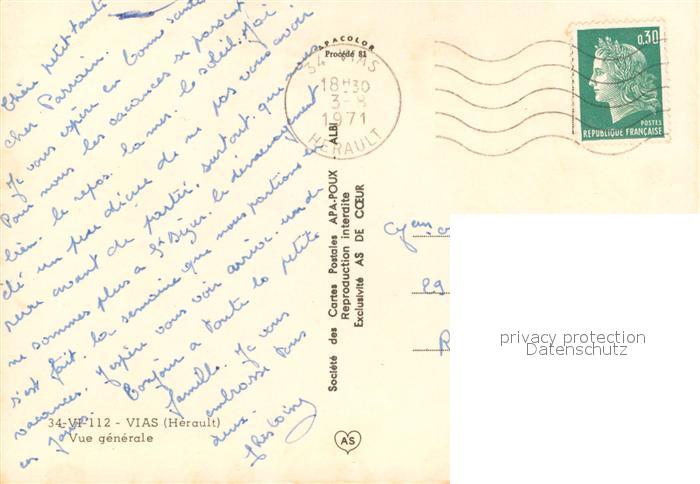 Chère petite tante
cher Parrain.
Je vous espère en bonne santé
Pour nous les vacances se passent
bien. le repos. la mer. le soleil. J'ai
été un peu déçue de ne pas vous avoir
revu avant de partir, surtout que nous
ne sommes plus à St Dizier. le déménagement
s'est fait la semaine que nous partions en
vacances. J'espère vous voir arriver un de
ces jours. Bonjour à toute la petite
famille. Je vous
embrasse tous
deux.
APACOLOR
Procédé 81
34 VIAS
18H30
3-8
1971
HERAULT
0,30
POSTES
REPUBLIQUE FRANÇAISE
Société des Cartes Postales APA-POUX - ALBI
Reproduction interdite
Exclusivité AS DE CŒUR
AS
34-VI-112 - VIAS (Hérault)
Vue générale
29
privacy protection
Datenschutz